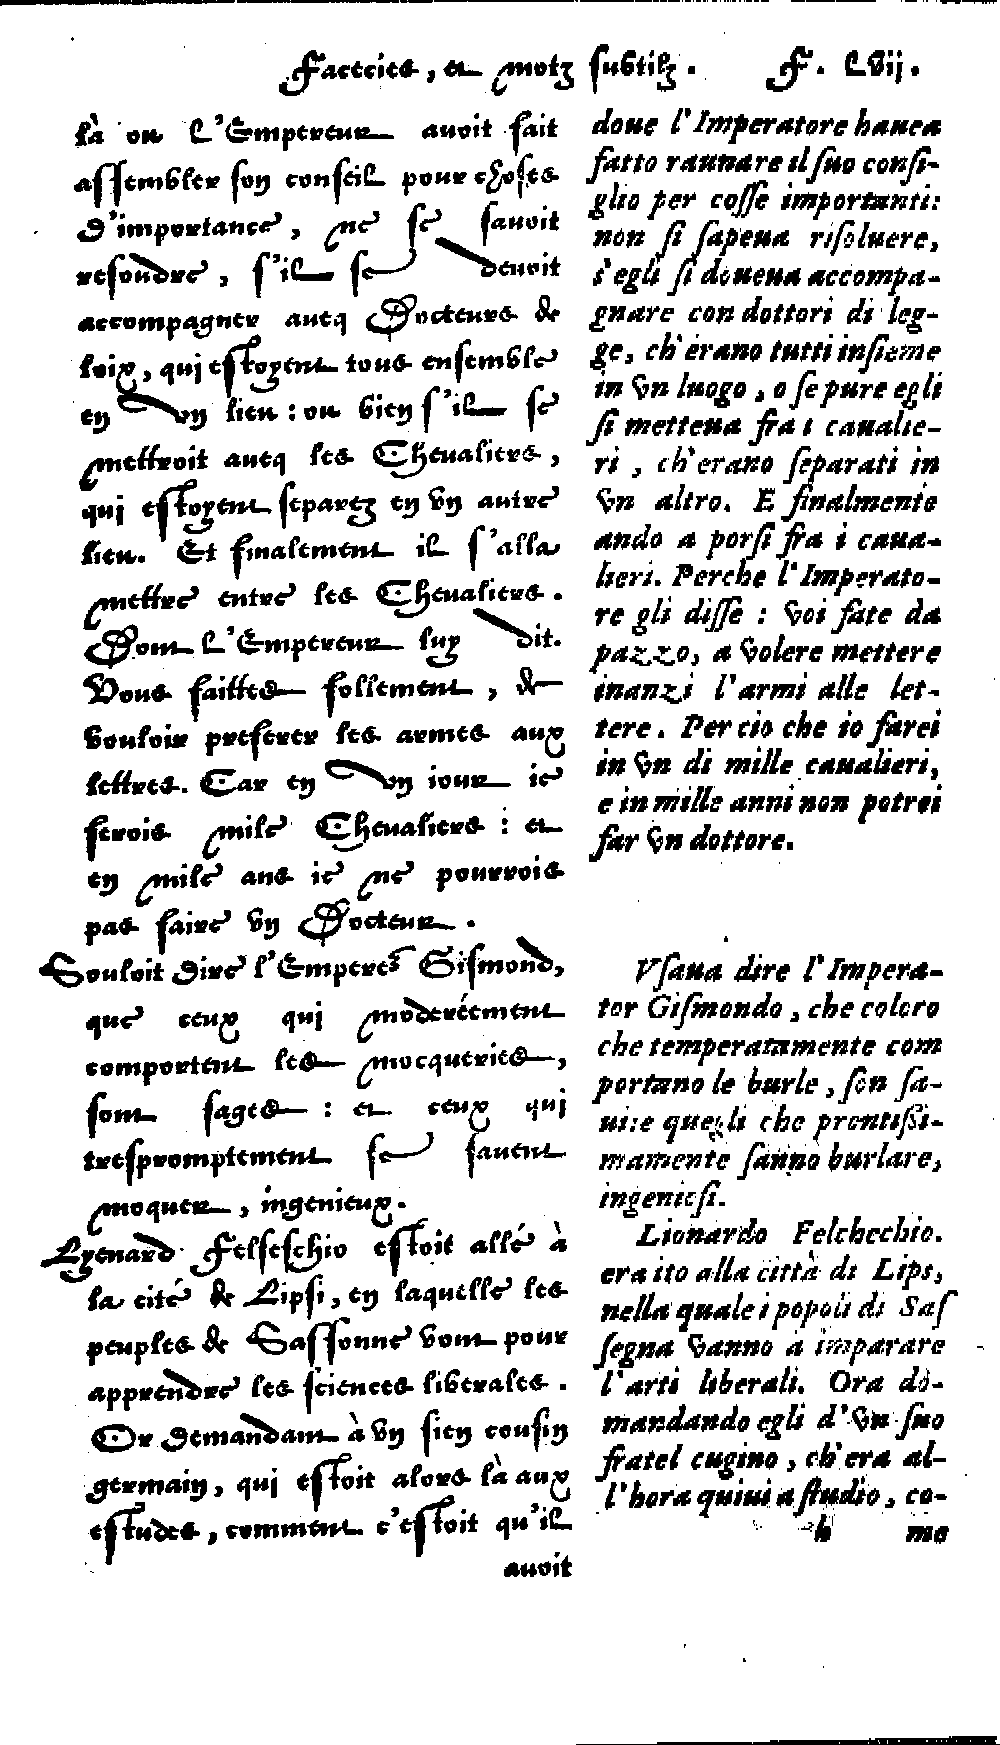 Facecies, et motz subtilz. F. Lvij.
là ou L'Empereur avoit fait
assembler son conseil pour choses
d'importance, ne se savoit
resoudre, s'il se devoit
accompagner aueq Docteurs de
loix, qui estoyent tous ensemble
en vn lieu : ou bien s'il se
mettroit aueq les Chevaliers,
qui estoyent separez en vn autre
lieu. Et finalement il s'alla
mettre entre les Chevaliers.
Dont L'Empereur luy dit.
Vous faittes follement, de
vouloir preferer les armes aux
lettres. Car en vn iour ie
ferois mile Chevaliers : et
en mile ans ie ne pourrois
pas faire vn Docteur.
Souloit dire l'Empereur Gismond,
que ceux qui moderéement
comportent les mocqueries,
sont sages : et ceux qui
trespromptement se savent
moquer, ingenieux.
Lyenard Felseschio estoit allé à
la cité de Lipsi, en laquelle les
peuples de Sassonne vont pour
apprendre les sciences liberales.
Or demandant à vn sien cousin
germain, qui estoit alors là aux
estudes, comment c'estoit qu'il
avoit
doue l'Imperatore hauea
fatto raunare il suo consi-
glio per cosse importanti:
non si sapeua risoluere,
s'egli si doueua accompa-
gnare con dottori di leg-
ge, ch'erano tutti insieme
in vn luogo, o se pure egli
si metteua fra i caualie-
ri, ch'erano separati in
vn altro. E finalmente
ando a porsi fra i caua-
lieri. Perche l'Imperato-
re gli disse : voi fate da
pazzo, a volere mettere
inanzi l'armi alle let-
tere. Per cio che io farei
in vn di mille caualieri,
e in mille anni non potrei
far vn dottore.
Vsaua dire l'Impera-
tor Gismondo, che coloro
che temperatamente com
portano le burle, son sa-
uii:e quegli che prontissi-
mamente sanno burlare,
ingeniosi.
Lionardo Felchechio.
era ito alla città di Lipsi,
nella quale i popoli di Sas
segna vanno à imparare
l'arti liberali. Ora dò-
mandando egli d'vn suo
fratel cugino, ch'era al-
l'hora quiui a studio, co-
h mo